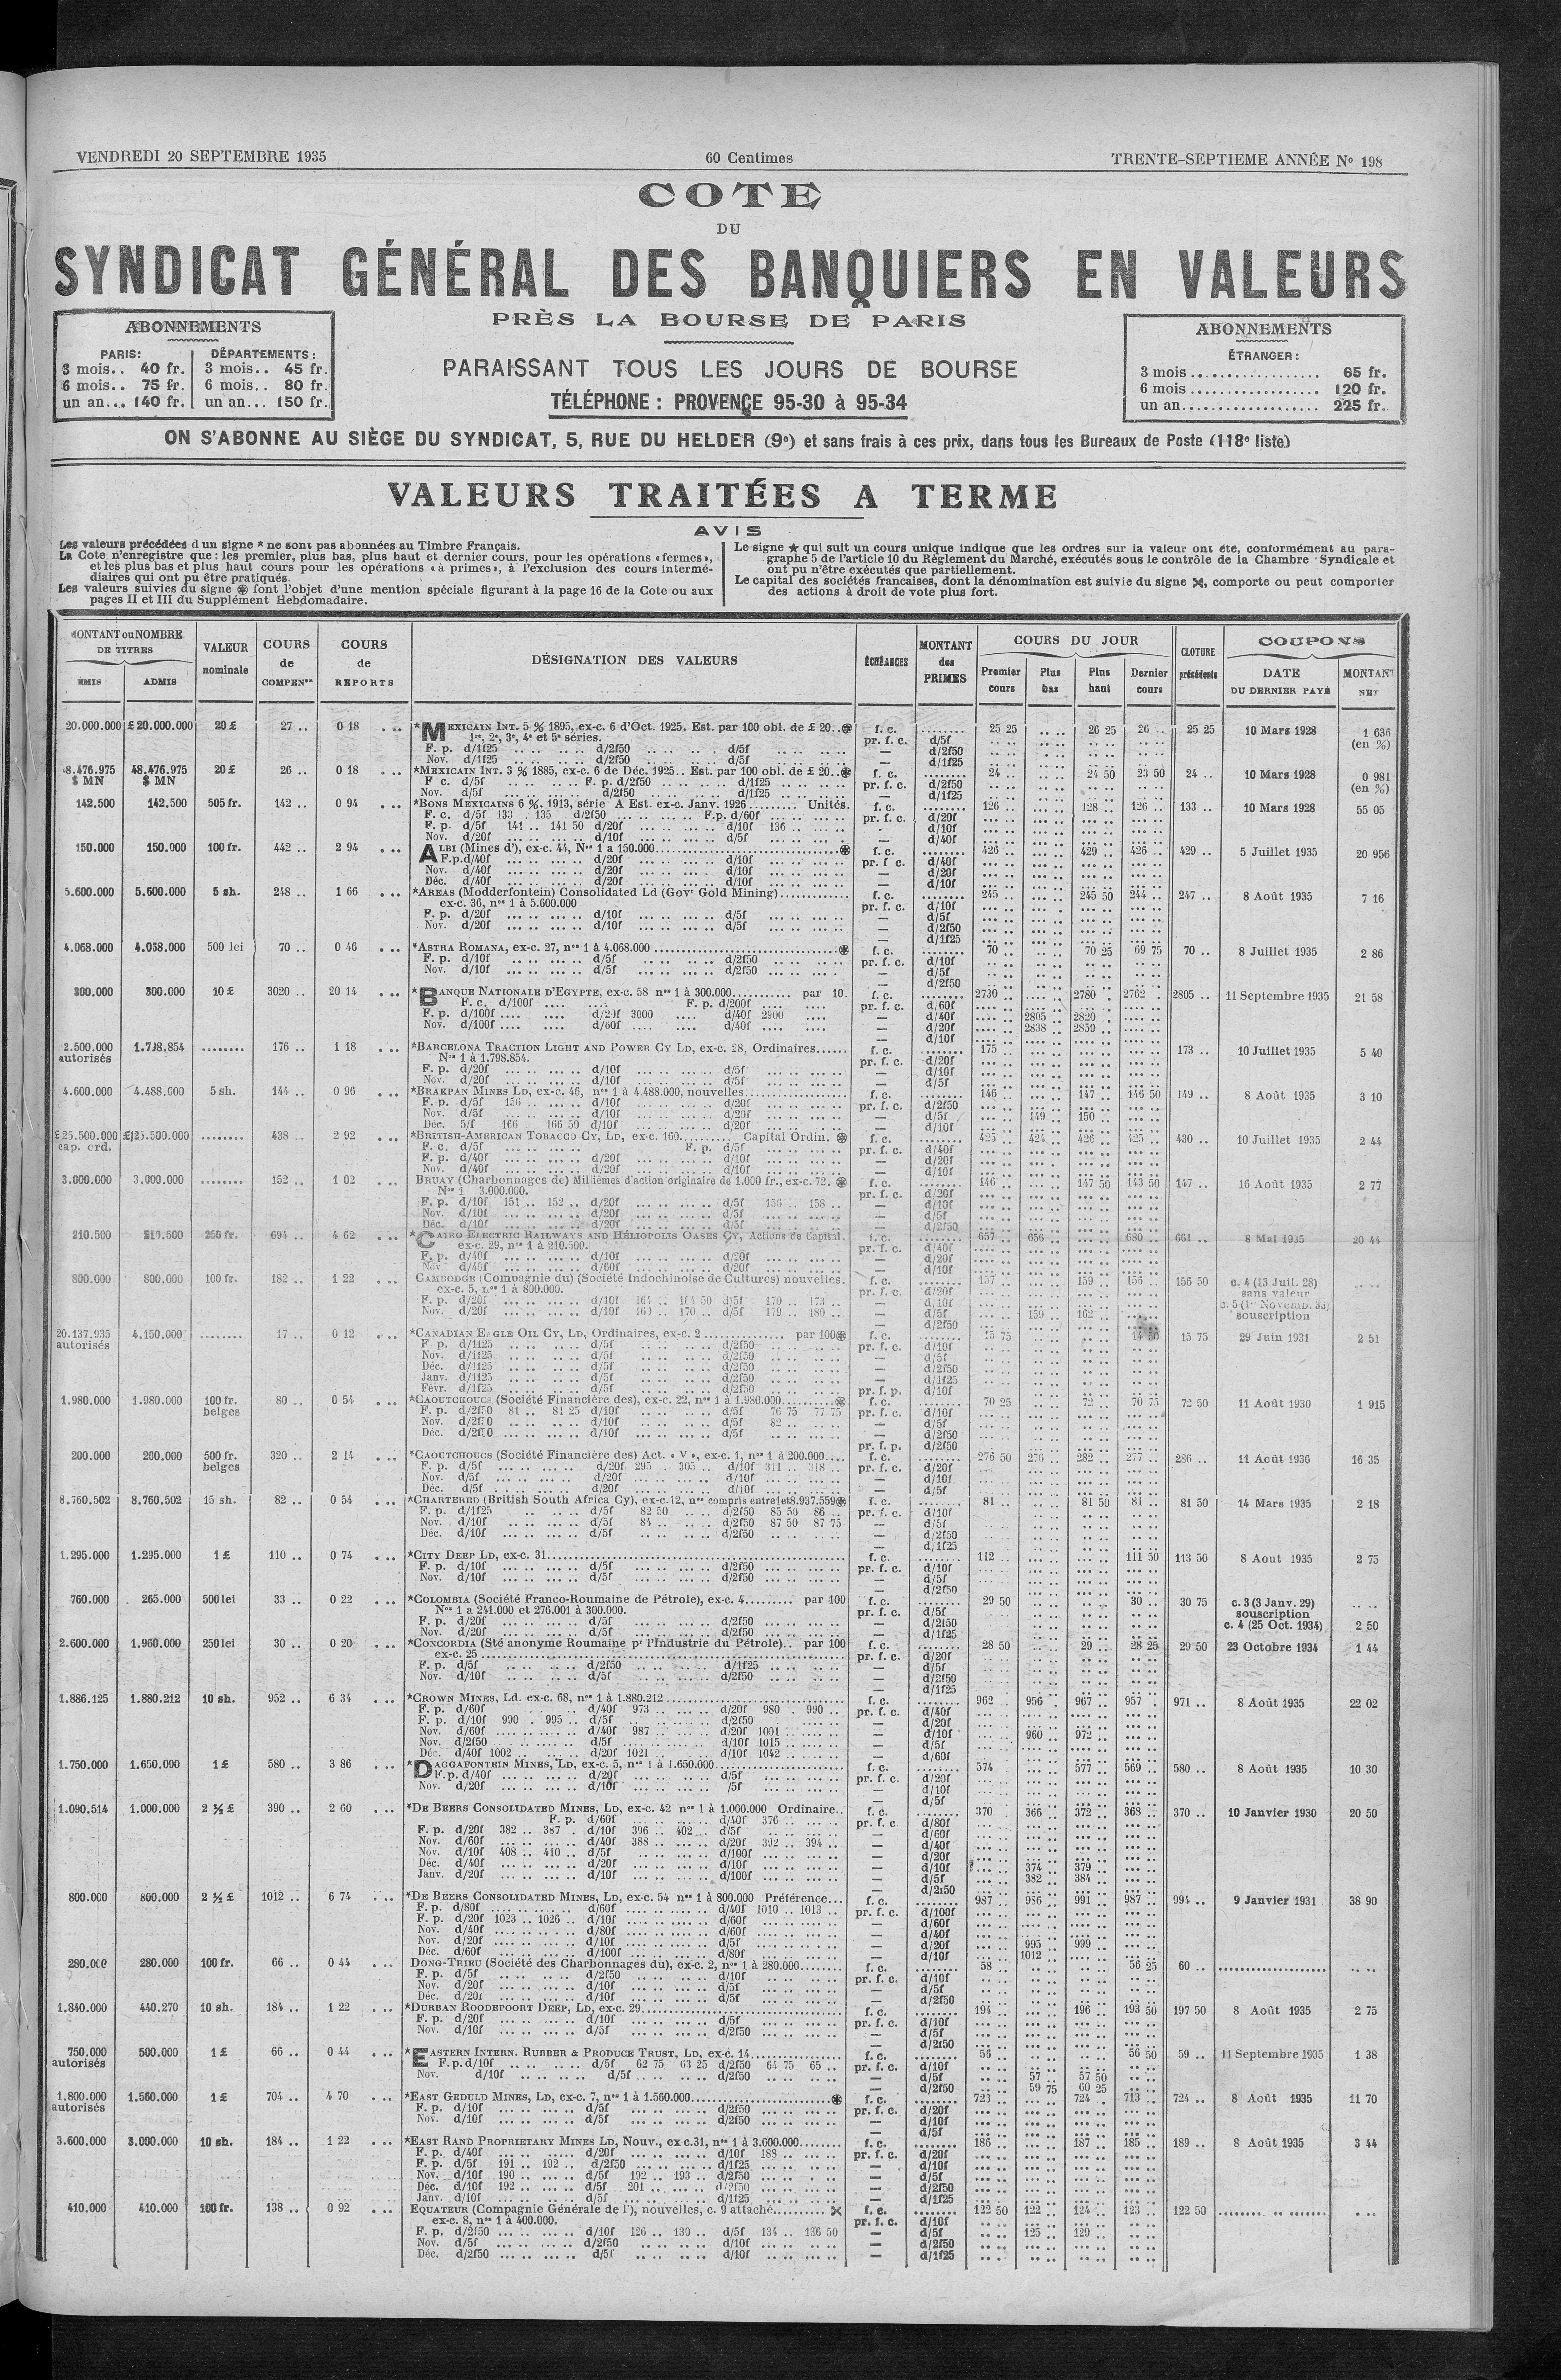 VENDREDI 20 SEPTEMBRE 1935
60 Centimes
TRENTE-SEPTIEME ANNÉE No 198
COTE
DU
SYNDICAT GÉNÉRAL DES BANQUIERS EN VALEURS
PRÈS LA BOURSE DE PARIS
ABONNEMENTS
PARIS:
3 mois.. 40 fr.
6 mois.. 75 fr.
un an... 140 fr.
DÉPARTEMENTS:
3 mois.. 45 fr.
6 mois.. 80 fr.
un an... 150 fr.
PARAISSANT TOUS LES JOURS DE BOURSE
TÉLÉPHONE : PROVENCE 95-30 à 95-34
ABONNEMENTS
ÉTRANGER:
3 mois ................. 65 fr.
6 mois ................. 120 fr.
un an.................. 225 fr.
ON S'ABONNE AU SIÈGE DU SYNDICAT, 5, RUE DU HELDER (9e) et sans frais à ces prix, dans tous les Bureaux de Poste (118e liste)
VALEURS TRAITÉES A TERME
AVIS
Les valeurs précédées d un signe * ne sont pas abonnées au Timbre Français.
La Cote n'enregistre que : les premier, plus bas, plus haut et dernier cours, pour les opérations « fermes »,
et les plus bas et plus haut cours pour les opérations « à primes », à l'exclusion des cours intermé-
diaires qui ont pu être pratiqués.
Les valeurs suivies du signe ⊛ font l'objet d'une mention spéciale figurant à la page 16 de la Cote ou aux
pages II et III du Supplément Hebdomadaire.
Le signe ★ qui suit un cours unique indique que les ordres sur la valeur ont été, conformément au para-
graphe 5 de l'article 10 du Règlement du Marché, exécutés sous le contrôle de la Chambre Syndicale et
ont pu n'être exécutés que partiellement.
Le capital des sociétés francaises, dont la dénomination est suivie du signe ⋈, comporte ou peut comporter
des actions à droit de vote plus fort.
MONTANT ou NOMBRE DE TITRES
ÉMIS
ADMIS
VALEUR nominale
COURS de COMPENon
COURS de REPORTS
DÉSIGNATION DES VALEURS
ÉCHÉANCES
MONTANT des PRIMES
COURS DU JOUR
Premier cours
Plus bas
Plus haut
Dernier cours
CLOTURE précédente
COUPONS
DATE DU DERNIER PAYÉ
MONTANT NET
20.000.000 £ 20.000.000 20 £ 27 .. 0 18 *MEXICAIN INT. 5 % 1895, ex-c. 6 d'Oct. 1925. Est. par 100 obl. de £ 20..⊛ f. c. 25 25 26 25 26 .. 25 25 10 Mars 1928 1 636 (en %)
1re, 2e, 3e, 4e et 5e séries.
F. p. d/1f25 d/2f50 d/5f
Nov. d/1f25 d/2f50 d/5f
48.476.975 $ MN 20 £ 26 .. 0 18 *MEXICAIN INT. 3 % 1885, ex-c. 6 de Déc. 1925.. Est. par 100 obl. de £ 20..⊛ f. c. 24 .. 24 50 23 50 24 .. 10 Mars 1928 0 981 (en %)
F c. d/5f F. p. d/2f50 d/1f25
Nov. d/5f d/2f50 d/1f25
142.500 142.500 505 fr. 142 .. 0 94 *BONS MEXICAINS 6 %, 1913, série A Est. ex-c. Janv. 1926......... Unités. f. c. 126 .. 128 .. 126 .. 133 .. 10 Mars 1928 55 05
F. c. d/5f 133 . 135 d/2f50 F.p. d/60f
F. p. d/5f 141 .. 141 50 d/20f d/10f 136 ..
Nov. d/20f d/10f d/5f
150.000 150.000 100 fr. 442 .. 2 94 ALBI (Mines d'), ex-c. 44, Nos 1 a 150.000 ⊛ f. c. 426 .. 429 .. 426 .. 429 .. 5 Juillet 1935 20 956
F.p. d/40f d/20f d/10f
Nov. d/40f d/20f d/10f
Déc. d/40f d/20f d/10f
5.600.000 5.600.000 5 sh. 248 .. 1 66 *AREAS (Modderfontein) Consolidated Ld (Govr Gold Mining) f. c. 245 .. 245 50 244 .. 247 .. 8 Août 1935 7 16
ex-c. 36, nos 1 à 5.600.000
F. p. d/20f d/10f d/5f
Nov. d/20f d/10f d/5f
4.068.000 4.058.000 500 lei 70 .. 0 46 *ASTRA ROMANA, ex-c. 27, nos 1 à 4.068.000 ⊛ f. c. 70 .. 70 25 69 75 70 .. 8 Juillet 1935 2 86
F. p. d/10f d/5f d/2f50
Nov. d/10f d/5f d/2f50
300.000 300.000 10 £ 3020 .. 20 14 *BANQUE NATIONALE D'EGYPTE, ex-c. 58 nos 1 à 300.000 par 10. f. c. 2730 .. 2780 . 2762 . 2805 .. 11 Septembre 1935 21 58
F. c. d/100f F. p. d/200f
F. p. d/100f d/20f 3000 d/40f 2900 2805 .. 2820 ..
Nov. d/100f d/60f d/40f 2838 .. 2850 ..
2.500.000 autorisés 1.798.854 176 .. 1 18 *BARCELONA TRACTION LIGHT AND POWER CY LD, ex-c. 28, Ordinaires f. c. 175 .. 173 .. 10 Juillet 1935 5 40
Nos 1 à 1.798.854.
F. p. d/20f d/10f d/5f
Nov. d/20f d/10f d/5f
4.600.000 4.488.000 5 sh. 144 .. 0 96 *BRAKPAN MINES LD, ex-c. 46, nos 1 à 4.488.000, nouvelles f. c. 146 .. 147 .. 146 50 149 .. 8 Août 1935 3 10
F. p. d/5f 156 .. d/10f d/20f
Nov. d/5f d/10f d/20f 149 .. 150 ..
Déc. 5/f 166 166 50 d/10f d/20f
£25.500.000 cap. ord. £25.500.000 438 .. 2 92 *BRITISH-AMERICAN TOBACCO CY, LD, ex-c. 160 Capital Ordin. ⊛ f. c. 425 .. 424 .. 426 .. 425 .. 430 .. 10 Juillet 1935 2 44
F. c. d/5f F. p. d/5f
F. p. d/40f d/20f d/10f
Nov. d/40f d/20f d/10f
3.000.000 3.000.000 152 .. 1 02 BRUAY (Charbonnages de) Millièmes d'action originaire de 1.000 fr., ex-c. 72. ⊛ f. c. 146 .. 147 50 143 50 147 .. 16 Août 1935 2 77
Nos 1 3.000.000.
F. p. d/10f 151 .. 152 .. d/20f d/5f 156 .. 158 ..
Nov. d/10f d/20f d/5f
Déc. d/10f d/20f d/5f
210.500 210.500 250 fr. 694 .. 4 62 *CAIRO ELECTRIC RAILWAYS AND HÉLIOPOLIS OASES CY, Actions de Capital. f. c. 657 .. 656 .. 680 .. 661 .. 8 Mai 1935 20 44
ex-c. 29, nos 1 à 210.500.
F. p. d/40f d/10f d/20f
Nov. d/40f d/60f d/20f
800.000 800.000 100 fr. 182 .. 1 22 CAMBODGE (Compagnie du) (Société Indochinoise de Cultures) nouvelles. f. c. 157 .. 159 .. 156 .. 156 50 c. 4 (13 Juil. 28) sans valeur
ex-c. 5, nos 1 à 800.000. souscription
F. p. d/20f d/10f 164 .. 164 50 d/5f 170 .. 173 ..
Nov. d/20f d/10f 160 .. 170 .. d/5f 179 .. 180 .. 159 .. 162 ..
20.137.935 autorisés 4.150.000 17 .. 0 12 *CANADIAN EAGLE OIL CY, LD, Ordinaires, ex-c. 2 par 100⊛ f. c. 15 75 14 50 15 75 29 Juin 1931 2 51
F. p. d/1f25 d/5f d/2f50
Nov. d/1f25 d/5f d/2f50
Déc. d/1f25 d/5f d/2f50
Janv. d/1f25 d/5f d/2f50
Févr. d/1f25 d/5f d/2f50
1.980.000 1.980.000 100 fr. belges 80 .. 0 54 *CAOUTCHOUCS (Société Financière des), ex-c. 22, nos 1 à 1.980.000 ⊛ f. c. 70 25 72 .. 70 75 72 50 11 Août 1930 1 915
F. p. d/2f50 81 .. 81 25 d/10f d/5f 76 75 77 75
Nov. d/2f50 d/10f d/5f 82 ..
Déc. d/2f50 d/10f d/5f
200.000 200.000 500 fr. belges 320 .. 2 14 *CAOUTCHOUCS (Société Financière des) Act. « V », ex-c. 1, nos 1 à 200.000 f. c. 276 50 276 .. 282 .. 277 .. 286 .. 11 Août 1930 16 35
F. p. d/5f d/20f 295 .. 305 .. d/10f 311 .. 318 ..
Nov. d/5f d/20f d/10f
Déc. d/5f d/20f d/10f
8.760.502 8.760.502 15 sh. 82 .. 0 54 *CHARTERED (British South Africa Cy), ex-c.12, nos compris entre1et8.937.559⊛ f. c. 81 .. 81 50 81 .. 81 50 14 Mars 1935 2 18
F. p. d/1f25 d/5f 82 50 d/2f50 85 50 86 ..
Nov. d/10f d/5f 84 .. d/2f50 87 50 87 75
Déc. d/10f d/5f d/2f50
1.295.000 1.295.000 1 £ 110 .. 0 74 *CITY DEEP LD, ex-c. 31 f. c. 112 .. 111 50 113 50 8 Aout 1935 2 75
F. p. d/10f d/5f d/2f50
Nov. d/10f d/5f d/2f50
760.000 265.000 500 lei 33 .. 0 22 *COLOMBIA (Société Franco-Roumaine de Pétrole), ex-c. 4 par 100 f. c. 29 50 30 .. 30 75 c. 3 (3 Janv. 29) souscription
Nos 1 a 241.000 et 276.001 à 300.000. c. 4 (25 Oct. 1934) 2 50
F. p. d/20f d/5f d/2f50
Nov. d/20f d/5f d/2f50
2.600.000 1.960.000 250 lei 30 .. 0 20 *CONCORDIA (Sté anonyme Roumaine pr l'Industrie du Pétrole).. par 100 f. c. 28 50 29 .. 28 25 29 50 23 Octobre 1934 1 44
ex-c. 25
F. p. d/5f d/2f50 d/1f25
Nov. d/10f d/5f d/2f50
1.886.125 1.880.212 10 sh. 952 .. 6 34 *CROWN MINES, Ld. ex-c. 68, nos 1 à 1.880.212 f. c. 962 . 956 .. 967 .. 957 . 971 .. 8 Août 1935 22 02
F. p. d/60f d/40f 973 .. d/20f 980 . 990 ..
F. p. d/10f 990 . 995 .. d/5f d/2f50
Nov. d/60f d/40f 987 .. d/20f 1001 .. 960 .. 972 ..
Nov. d/2f50 d/5f d/10f 1015 ..
Déc. d/40f 1002 .. d/20f 1021 .. d/10f 1042 ..
1.750.000 1.650.000 1 £ 580 .. 3 86 *DAGGAFONTEIN MINES, LD, ex-c. 5, nos 1 à 1.650.000 f. c. 574 577 .. 569 .. 580 .. 8 Août 1935 10 30
F.p. d/40f d/20f d/5f
Nov. d/20f d/10f /5f
1.090.514 1.000.000 2 ½ £ 390 .. 2 60 *DE BEERS CONSOLIDATED MINES, LD, ex-c. 42 nos 1 à 1.000.000 Ordinaire.. f. c. 370 . 366 .. 372 .. 368 .. 370 .. 10 Janvier 1930 20 50
F. p. d/60f d/40f 376 ..
F. p. d/20f 382 .. 387 . d/10f 396 .. 402 .. d/5f
Nov. d/60f d/40f 388 .. d/20f 392 .. 394 ..
Nov. d/10f 408 .. 410 .. d/5f d/100f
Déc. d/40f d/20f d/10f 374 .. 379 ..
Janv. d/20f d/10f d/100f 382 .. 384 ..
800.000 800.000 2 ½ £ 1012 .. 6 74 *DE BEERS CONSOLIDATED MINES, LD, ex-c. 54 nos 1 à 800.000 Préférence... f. c. 987 .. 986 .. 991 .. 987 .. 994 .. 9 Janvier 1931 38 90
F. p. d/80f d/60f d/40f 1010 .. 1013 ..
F. p. d/20f 1023 .. 1026 .. d/10f d/60f
Nov. d/40f d/80f d/60f
Nov. d/20f d/10f d/5f 995 .. 999 ..
Déc. d/60f d/100f d/80f 1012 ..
280.000 280.000 100 fr. 66 .. 0 44 DONG-TRIEU (Société des Charbonnages du), ex-c. 2, nos 1 à 280.000 f. c. 58 .. 56 25 60 ..
F. p. d/5f d/2f50 d/10f
Nov. d/20f d/10f d/5f
Déc. d/20f d/10f d/5f
1.840.000 440.270 10 sh. 184 .. 1 22 *DURBAN ROODEPOORT DEEP, LD, ex-c. 29 f. c. 194 .. 196 .. 193 50 197 50 8 Août 1935 2 75
F. p. d/20f d/10f d/5f
Nov. d/10f d/5f d/2f50
750.000 autorisés 500.000 1 £ 66 .. 0 44 *EASTERN INTERN. RUBBER & PRODUCE TRUST, LD, ex-c. 14 f. c. 56 .. 56 50 59 .. 11 Septembre 1935 1 38
F.p. d/10f d/5f 62 75 63 25 d/2f50 64 75 65 .. 57 .. 57 50
Nov. d/10f d/5f d/2f50 59 75 60 25
1.800.000 autorisés 1.560.000 1 £ 704 .. 4 70 *EAST GEDULD MINES, LD, ex-c. 7, nos 1 à 1.560.000 ⊛ f. c. 723 .. 724 . 713 .. 724 .. 8 Août 1935 11 70
F. p. d/10f d/5f d/2f50
Nov. d/10f d/5f d/2f50
3.600.000 3.000.000 10 sh. 184 .. 1 22 *EAST RAND PROPRIETARY MINES LD, Nouv., ex c.31, nos 1 à 3.000.000 f. c. 186 .. 187 .. 185 .. 189 .. 8 Août 1935 3 44
F. p. d/40f d/20f d/10f 188 ..
F. p. d/5f 191 .. 192 .. d/2f50 d/1f25
Nov. d/10f 190 .. d/5f 192 .. 193 .. d/2f50
Déc. d/10f 192 .. d/5f 201 .. d/2f50
Janv. d/10f d/5f d/1f25
410.000 410.000 100 fr. 138 .. 0 92 EQUATEUR (Compagnie Générale de l'), nouvelles, c. 9 attaché ⋈ f. c. 122 50 122 .. 124 .. 123 .. 122 50
ex-c. 8, nos 1 à 400.000.
F. p. d/2f50 d/10f 126 .. 130 .. d/5f 134 .. 136 50 125 .. 129 ..
Nov. d/5f d/2f50 d/10f
Déc. d/2f50 d/5f d/10f